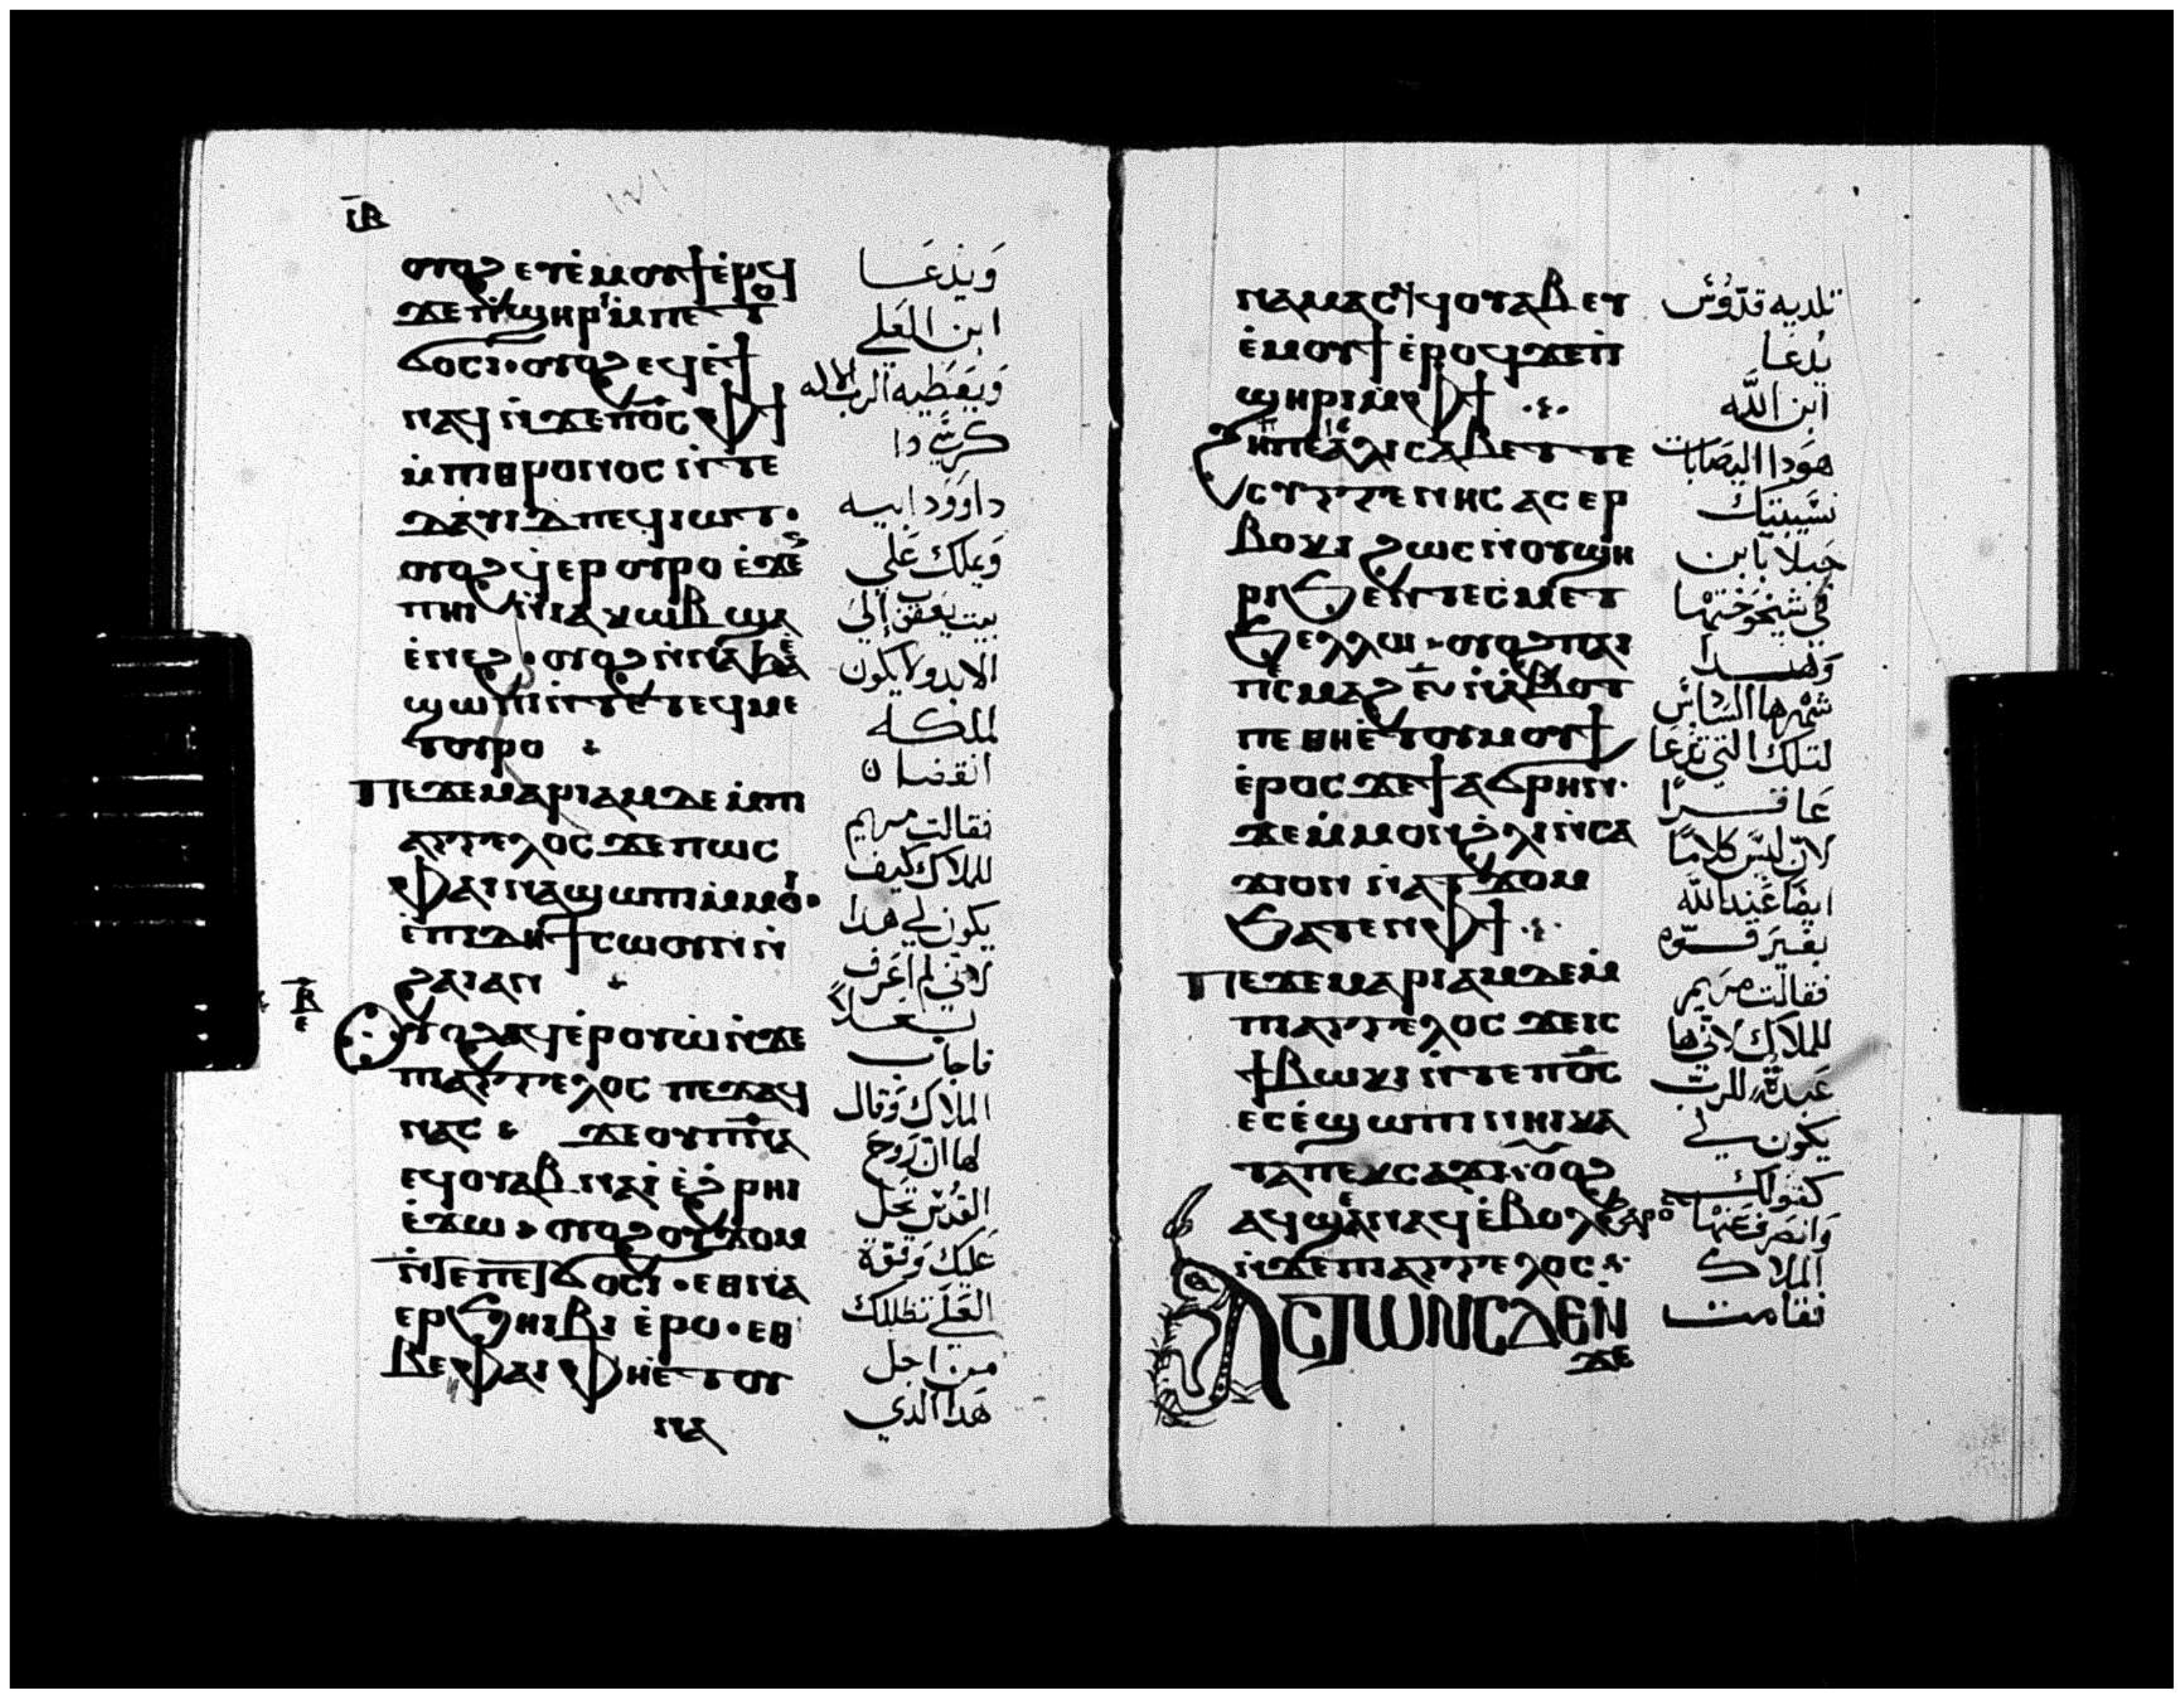 ⲓⲃ
ⲟⲩⲟϩ ⲉⲩⲉ̀ⲙⲟⲩϯ ⲉ̀ⲣⲟϥ
ϫⲉ ⲡϣⲏⲣⲓ ⲙ̀ⲡⲉⲧ
ϭⲟⲥⲓ · ⲟⲩⲟϩ ⲉϥⲉ̀ϯ
ⲛⲁϥ ⲛ̀ϫⲉ ⲡⲟ̅ⲥ̅ ⲫϯ
ⲙ̀ⲡⲓⲑⲣⲟⲛⲟⲥ ⲛ̀ⲧⲉ
ⲇⲁⲩⲓⲇ ⲡⲉϥⲓⲱⲧ ·
ⲟⲩⲟϩ ϥ̀ⲉⲣ ⲟⲩⲣⲟ ⲉ̀ϫⲉⲛ
ⲡⲏⲓ ⲛ̀ⲓⲁⲕⲱⲃ ϣⲁ
ⲉ̀ⲛⲉϩ · ⲟⲩⲟϩ ⲛ̀ⲛⲉ ϧⲁⲉ̀
ϣⲱⲡⲓ ⲛ̀ⲧⲉ ⲧⲉϥⲙⲉ
ⲧⲟⲩⲣⲟ
ⲡⲉϫⲉ ⲙⲁⲣⲓⲁⲙ ⲇⲉ ⲙ̀ⲡⲓ
ⲁⲅⲅⲉⲗⲟⲥ ϫⲉ ⲡⲱⲥ
ⲫⲁⲓ ⲛⲁϣⲱⲡⲓ ⲙ̀ⲙⲟⲓ ·
ⲉ̀ⲡⲓⲇⲏ ϯⲥⲱⲟⲩⲛ ⲛ̀
ϩⲁⲓ ⲁⲛ
ⲃ̅ ⲉ
ⲟⲩⲟϩ ⲁϥⲉ̀ⲣⲟⲩⲱ ⲛ̀ϫⲉ
ⲡⲓⲁⲅⲅⲉⲗⲟⲥ ⲡⲉϫⲁϥ
ⲛⲁⲥ ϫⲉ ⲟⲩⲡ̅ⲛ̅ⲁ̅
ⲉϥⲟⲩⲁⲃ ⲛⲁⲓ̀ ⲉ̀ϩⲣⲏⲓ
ⲉ̀ϫⲱ · ⲟⲩⲟϩ ⲟⲩϫⲟⲙ
ⲛ̀ⲧⲉ ⲡⲉⲧϭⲟⲥⲓ · ⲉⲑⲛⲁ
ⲉⲣϧⲏⲓⲃⲓ ⲉ̀ⲣⲟ · ⲉⲑ
ⲃⲉ ⲫⲁⲓ ⲫⲏⲉ̀ⲧⲟⲩ
ⲛⲁ
وَيدعَـا
ابن العَلي
وَيعَطيه الرب الاله
كرسَّي دا
داوَود ابيه
وَيملك عَلي
بيت يَعقوب إلي
الابد ولا يكون
لملكـه
انقضـا ن
فقالت مريم
للملاك كيف
يكون لي هدا
لانّي لم اعَرف
بعـلاً
فاجاب
الملاك وَقال
لها ان روح
القدُس تحل
عَليك وَقوّة
العَلي تظللك
من اجل
هَدا الدي
ⲛⲁⲙⲁⲥϥ ϥⲟⲩⲁⲃ ⲉⲩ
ⲉ̀ⲙⲟⲩϯ ⲉ̀ⲣⲟϥ ϫⲉ ⲡ
ϣⲏⲣⲓ ⲙ̀ⲫϯ
ϩⲏⲡⲡⲉ ⲓⲥ ⲉⲗⲓⲥⲁⲃⲉⲧ ⲧⲉ
ⲥⲩⲅⲅⲉⲛⲏⲥ ⲁⲥⲉⲣ
ⲃⲟⲕⲓ ϩⲱⲥ ⲛ̀ⲟⲩϣⲏ
ⲣⲓ ϧⲉⲛ ⲧⲉⲥⲙⲉⲧ
ϧⲉⲗⲗⲱ · ⲟⲩⲟϩ ⲫⲁⲓ
ⲡⲉ ⲡⲥⲙⲁϩ ⲋ̅ ⲛ̀ⲁ̀ⲃⲟⲧ
ⲡⲉ ⲑⲏⲉ̀ⲧⲟⲩⲙⲟⲩϯ
ⲉ̀ⲣⲟⲥ ϫⲉ ϯⲁϭⲣⲏⲛ ·
ϫⲉ ⲙ̀ⲙⲟⲛ ϩⲗⲓ ⲛ̀ⲥⲁ
ϫⲓ ⲟⲓ ⲛ̀ⲁⲧϫⲟⲙ
ϧⲁⲧⲉⲛ ⲫϯ
ⲡⲉϫⲉ ⲙⲁⲣⲓⲁⲙ ⲇⲉ ⲙ̀
ⲡⲓⲁⲅⲅⲉⲗⲟⲥ ϫⲉ ⲓⲥ
ϯⲃⲱⲕⲓ ⲛ̀ⲧⲉ ⲡⲟ̅ⲥ̅
ⲉⲥⲉ̀ϣⲱⲡⲓ ⲛⲏⲓ ⲕⲁ
ⲧⲁ ⲡⲉⲕⲥⲁϫⲓ · ⲟⲩⲟϩ
ⲁϥϣⲉⲛⲁϥ ⲉ̀ⲃⲟⲗ ϩⲁⲣⲟⲥ
ⲛ̀ϫⲉ ⲡⲓⲁⲅⲅⲉⲗⲟⲥ
ⲁⲥⲧⲱⲛⲥ ⲇⲉ ⲛ̀
ϫⲉ
تلديه قدّوُسٌ
يُدعَـا
ابن اللّه
هوَدا اليصَابات
نسّيبتك
حَبلا بابن
في شيخوخَتها
وَهـدا
شهرها السَادس
لتلك التي تدعَا
عَاقـرًا
لانّ ليسَ كلامًا
ايضًا عَند اللّه
بغيرَ قـوّه
فقالت مرَيم
للملاك لانّي ها
عَبدةٌ للربّ
يكون لي
كقولك
وَانصَرف عَنها
الملاك
فقامت